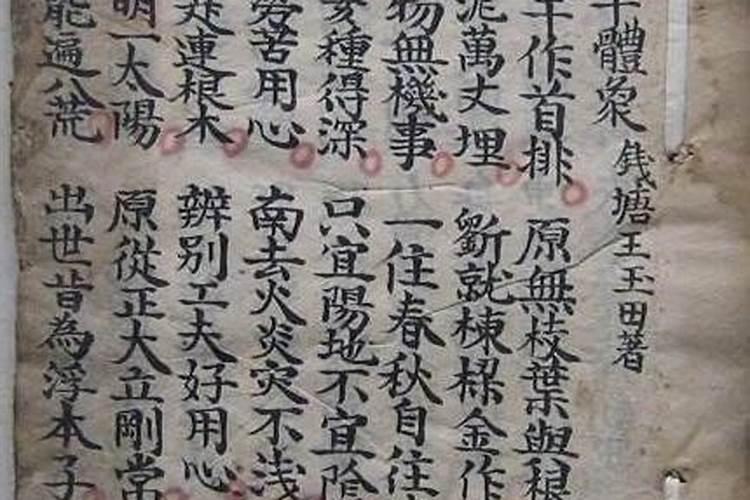 干體象 錢塘王玉田著
干作首排 原無枝葉與根
泥萬丈埋 斵就棟樑金作
物無機事 一住春秋自住
種得深 只宜陽地不宜陰
苦用心 南去火炎灾不浅
連根木 辨别工夫好用心
明一太陽 原從正大立剛常
能遍八荒 出世昔為浮本子